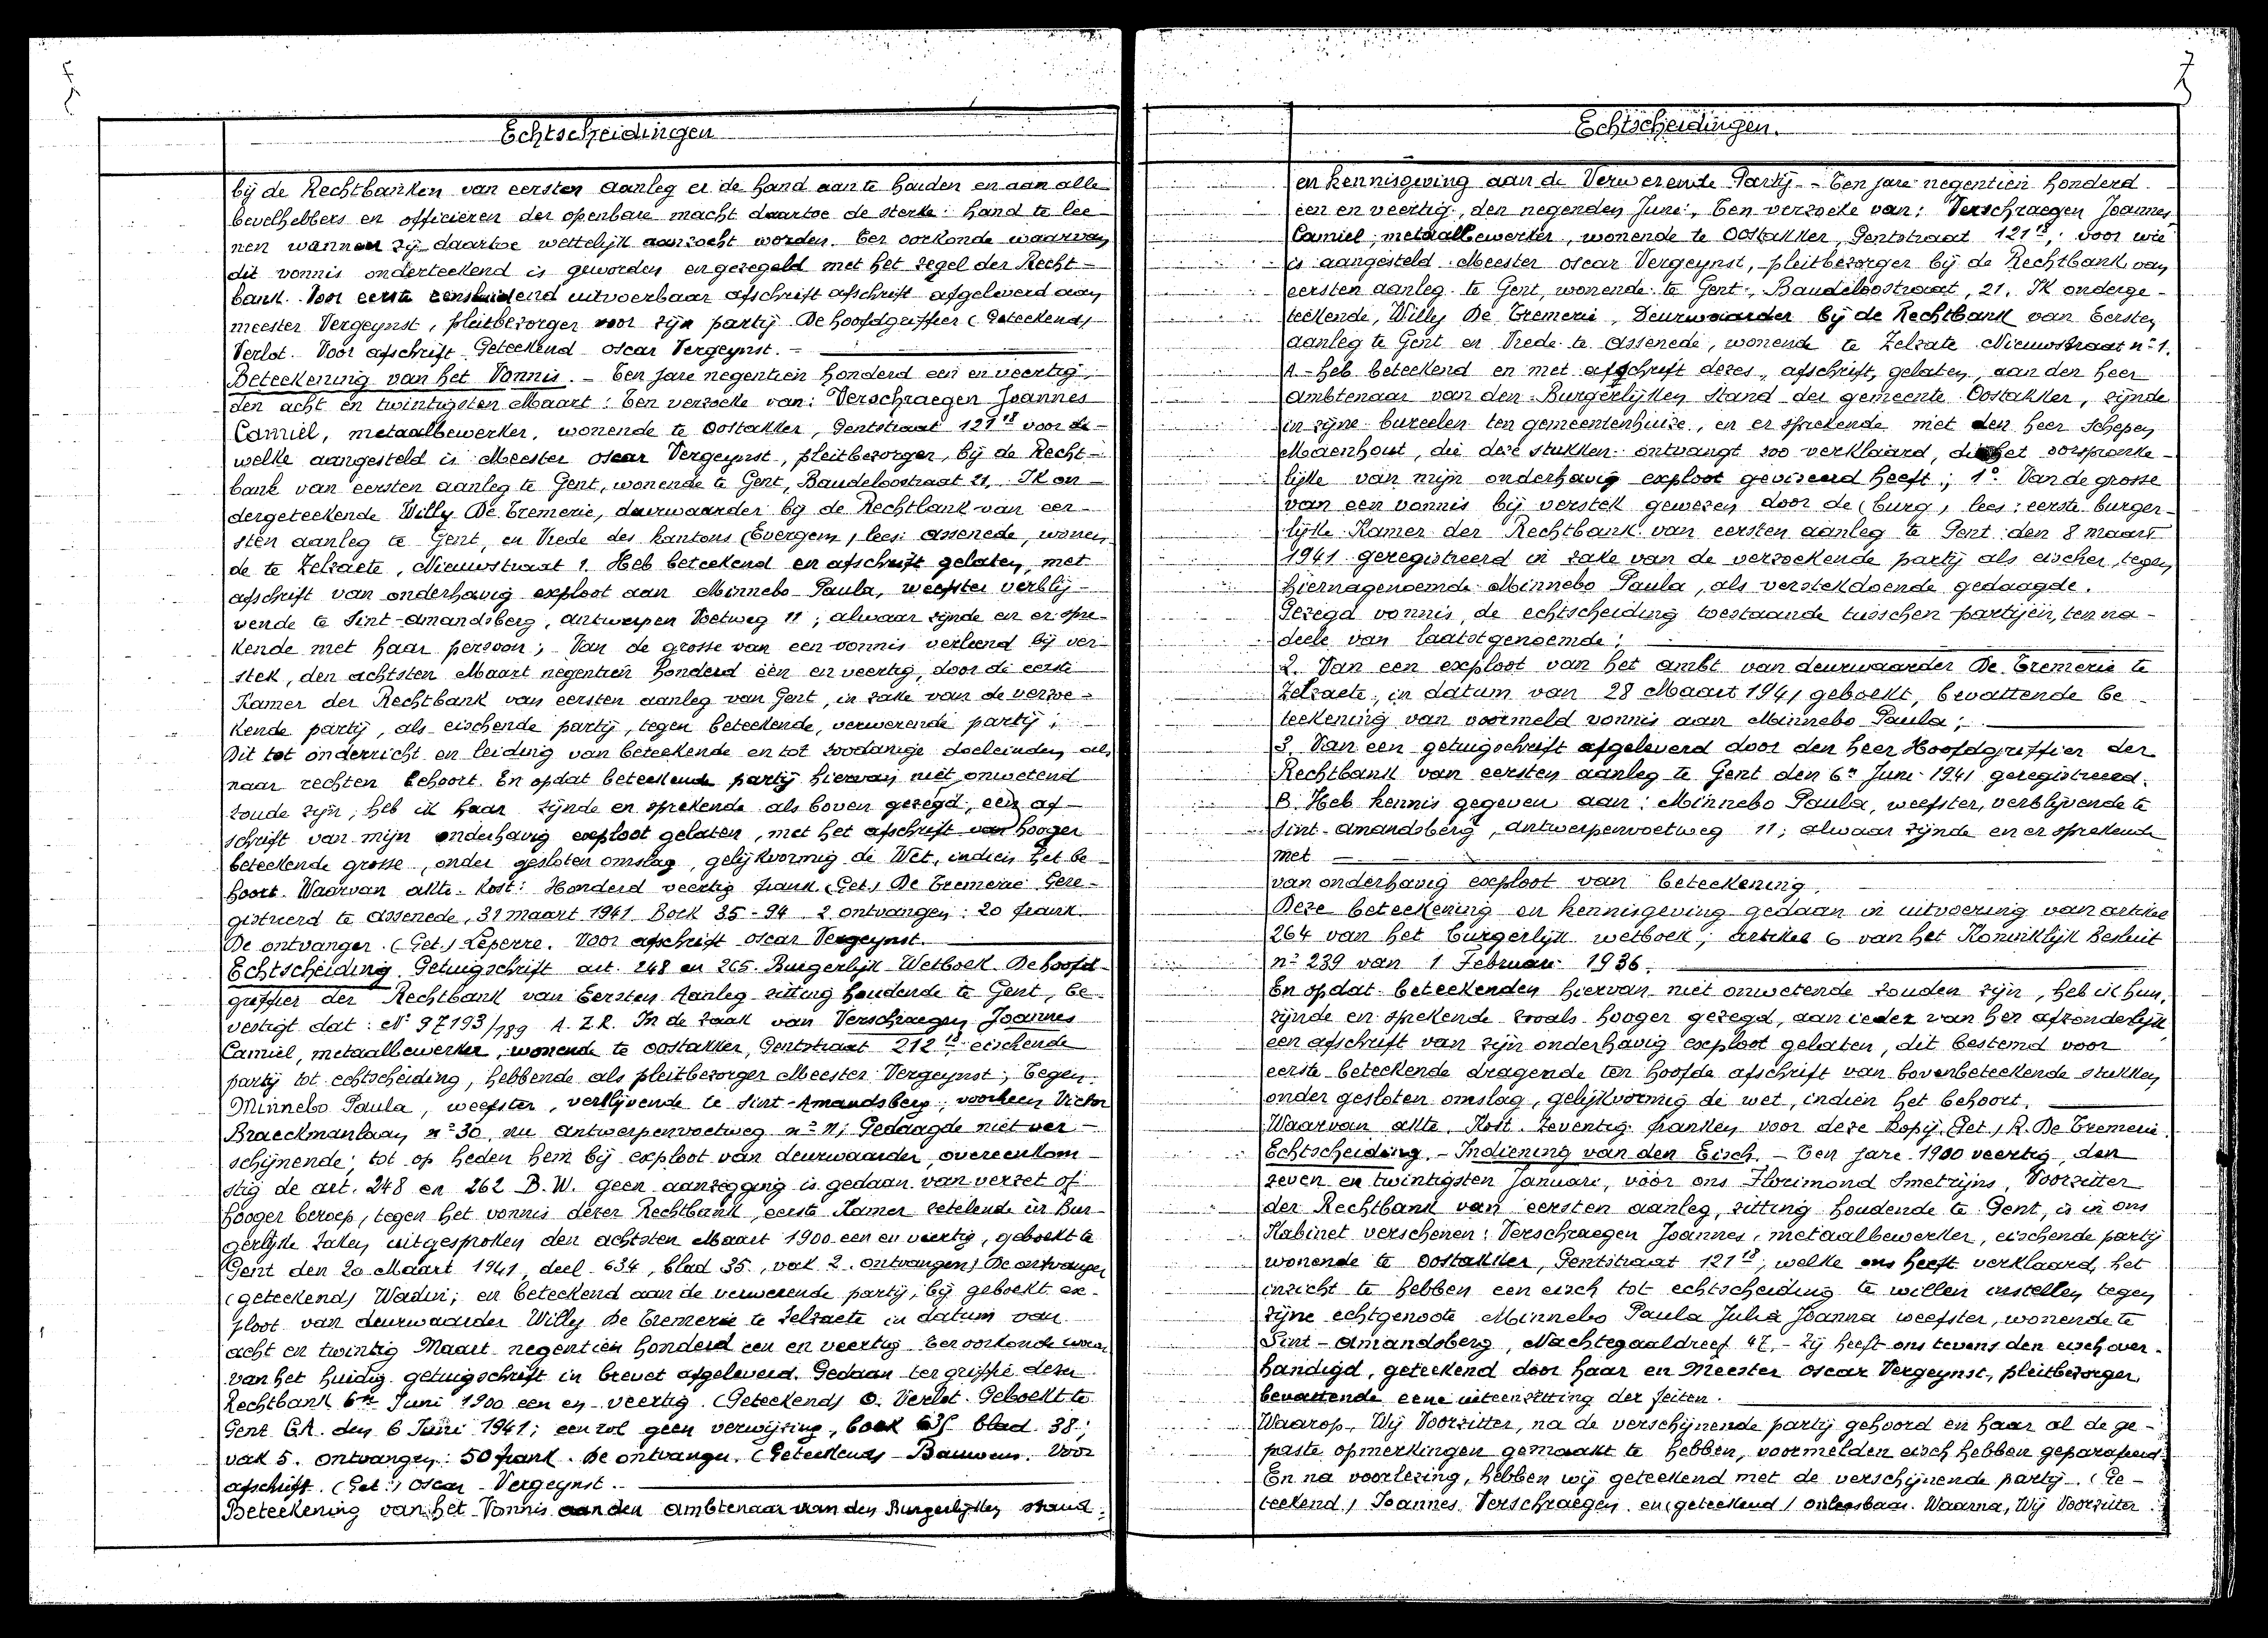 Echtscheidingen
bij de Rechtbanken van eersten aanleg er de hand aan te houden en aan alle
bevelhebbers en officieren der openbare macht daartoe de sterke hand te lee-
nen wanneer zij daartoe wettelijk aanzocht worden. Ter oorkonde waarvan
dit vonnis onderteekend is geworden en gezegeld met het zegel der Recht-
bank. Voor eerste eensluidend uitvoerbaar afschrift afschrift afgeleverd aan
meester Vergeynst, pleitbezorger voor zijn partij De hoofdgriffier (Geteekend)
Verlot. Voor afschrift Geteekend oscar Vergeynst. -
Beteekening van het Vonnis. - Ten jare negentien honderd een en veertig,
den acht en twintigsten Maart: Ten verzoeke van: Verschraegen Joannes
Camiel, metaalbewerker, wonende te Oostakker, Gentstraat 121 18 voor de-
welke aangesteld is Meester oscar Vergeynst, pleitbezorger, bij de Recht-
bank van eersten aanleg te Gent, wonende te Gent, Baudeloostraat 21, Ik on-
dergeteekende Willy De Tremerie, deurwaarder bij de Rechtbank van eer-
sten aanleg te Gent, en Vrede des kantons (Evergem) lees: Assenede, wonen-
de te Zelzaete, Nieuwstraat 1. Heb beteekend en afschrift gelaten, met
afschrift van onderhavig exploot aan Minnebo Paula, weefster verblij-
vende te Sint-Amandsberg, Antwerpen Voetweg 11; alwaar zijnde en er spre-
kende met haar persoon; Van de grosse van een vonnis verleend bij ver-
stek, den achtsten Maart negentien honderd één en veertig, door de eerste
Kamer der Rechtbank van eersten aanleg van Gent, in zake van de verzoe-
kende partij, als eischende partij, tegen beteekende, verwerende partij;
Dit tot onderricht en leiding van beteekende en tot zoodanige doeleinden als
naar rechten behoort. En opdat beteekende partij hiervan niet onwetend
zoude zijn, heb ik haar zijnde en sprekende als boven gezegd, een af-
schrift van mijn onderhavig exploot gelaten, met het afschrift van hooger
beteekende grosse, onder gesloten omslag, gelijkvormig de Wet, indien het be-
hoort. Waarvan akte. Kost: Honderd veertig frank (Get.) De Tremerie Gere-
gistreerd te Assenede, 31 maart 1941 Boek 35-94 2 ontvangen: 20 frank.
De ontvanger. (Get.) Leperre. Voor afschrift oscar Vergeynst.
Echtscheiding. Getuigschrift art. 248 en 265. Burgerlijk Wetboek. De hoofd-
griffier der Rechtbank van Eersten Aanleg zitting houdende te Gent, be-
vestigt dat: N° 97193/789 A.Z.R. In de zaak van Verschraegen Joannes
Camiel, metaalbewerker, wonende te Oostakker, Gentstraat 212 18 eischende
partij tot echtscheiding, hebbende als pleitbezorger Meester Vergeynst; Tegen:
Minnebo Paula, weefster, verblijvende te Sint-Amandsberg, voorheen Victor
Braeckmanlaan n° 30, nu Antwerpenvoetweg n° 11; Gedaagde niet ver-
schijnende; tot op heden hem bij exploot van deurwaarder, overeenkom-
stig de art. 248 en 262 B.W. geen aanzegging is gedaan van verzet of
hooger beroep, tegen het vonnis dezer Rechtbank, eerste Kamer zetelende in Bur-
gerlijke Zaken uitgesproken den achtsten Maart 1900 een en veertig, geboekt te
Gent den 20 Maart 1941, deel 634, blad 35, vak 2. ontvangen) De ontvanger
(geteekend) Wadin; en beteekend aan de verwerende partij, bij geboekt ex-
ploot van deurwaarder Willy De Tremerie te Zelzaete in datum van
acht en twintig Maart negentien honderd een en veertig Ter oorkonde waar
van het huidig getuigschrift in brevet afgeleverd. Gedaan ter griffie dezer
Rechtbank 6en Juni 1900 een en veertig. (Geteekend) O. Verlot. Geboekt te
Gent G.A. den 6 Juni 1941; een rol geen verwijzing, boek blad 38;
vak 5. ontvangen: 50 frank. De ontvanger. (Geteekend) Bauwens. Voor
afschrift. (Get.) Oscar Vergeynst.
Beteekening van het Vonnis aan den Ambtenaar van den Burgerlijken stand
Echtscheidingen.
en kennisgeving aan de Verwerende Partij. - Ten jare negentien honderd
een en veertig, den negenden Juni, Ten verzoeke van: Verschraegen Joannes
Camiel, metaalbewerker, wonende te Oostakker, Gentstraat 121 18, voor wie
is aangesteld Meester oscar Vergeynst, pleitbezorger bij de Rechtbank van
eersten aanleg te Gent, wonende te Gent, Baudeloostraat, 21. Ik onderge-
teekende, Willy De Tremerie, Deurwaarder bij de Rechtbank van Eersten
aanleg te Gent en Vrede te Assenede, wonende te Zelzate Nieuwstraat n° 1.
A - heb beteekend en met afschrift dezes, afschrift, gelaten, aan den heer
Ambtenaar van den Burgerlijken Stand der gemeente Oostakker, zijnde
in zijne bureelen ten gemeentenhuize, en er sprekende met den heer Schepen
Maenhout, die deze stukken ontvangt zoo verklaard, die het oorspronke-
lijke van mijn onderhavig exploot geviseerd heeft; 1° Van de grosse
van een vonnis bij verstek gewezen door de (burg) lees: eerste burger-
lijke Kamer der Rechtbank van eersten aanleg te Gent den 8 maart
1941 geregistreerd in zake van de verzoekende partij als eischer, tegen
hiernagenoemde Minnebo Paula, als verstekdoende gedaagde.
Gezegd vonnis, de echtscheiding toestaande tusschen partijen, ten na-
deele van laatstgenoemde;
2. Van een exploot van het ambt van deurwaarder De Tremerie te
Zelzaete, in datum van 28 Maart 1941 geboekt, bevattende be-
teekening van voormeld vonnis aan Minnebo Paula;
3. Van een getuigschrift afgeleverd door den heer Hoofdgriffier der
Rechtbank van eersten aanleg te Gent den 6n Juni 1941 geregistreerd.
B. Heb kennis gegeven aan: Minnebo Paula, weefster, verblijvende te
Sint-Amandsberg, Antwerpenvoetweg 11; alwaar zijnde en er sprekende
met
van onderhavig exploot van beteekening.
Deze beteekening en kennisgeving gedaan in uitvoering van artikel
264 van het burgerlijk wetboek; artikel 6 van het Koninklijk Besluit
n° 239 van 1 Februari 1936.
En opdat beteekenden hiervan niet onwetende zouden zijn, heb ik hun,
zijnde en sprekende zooals hooger gezegd, aan ieder van hen afzonderlijk
een afschrift van zijn onderhavig exploot gelaten, dit bestemd voor
eerste beteekende dragende ten hoofde afschrift van bovenbeteekende stukken
onder gesloten omslag, gelijkvormig de wet, indien het behoort.
Waarvan akte. Kost. Zeventig franken voor deze Kopij. (Get.) R. De Tremerie.
Echtscheiding. - Indiening van den Eisch. - Ten jare 1900 veertig, den
zeven en twintigsten Januari, vóór ons Florimond Smetrijns, Voorzitter
der Rechtbank van eersten aanleg, zitting houdende te Gent, is in ons
Kabinet verschenen: Verschraegen Joannes, metaalbewerker, eischende partij
wonende te Oostakker, Gentstraat 121 18, welke ons heeft verklaard, het
inzicht te hebben een eisch tot echtscheiding te willen instellen tegen
zijne echtgenoote Minnebo Paula Julia Joanna weefster, wonende te
Sint-Amandsberg, Nachtegaaldreef 47. - Zij heeft ons tevens den eisch over-
handigd, geteekend door haar en Meester Oscar Vergeynst, pleitbezorger,
bevattende eene uiteenzetting der feiten.
Waarop, Wij Voorzitter, na de verschijnende partij gehoord en haar al de ge-
paste opmerkingen gemaakt te hebben, voormelden eisch hebben geparafeerd.
En na voorlezing, hebben wij geteekend met de verschijnende partij. (Ge-
teekend) Joannes Verschraegen. en (geteekend) onleesbaar. Waarna, Wij Voorzitter